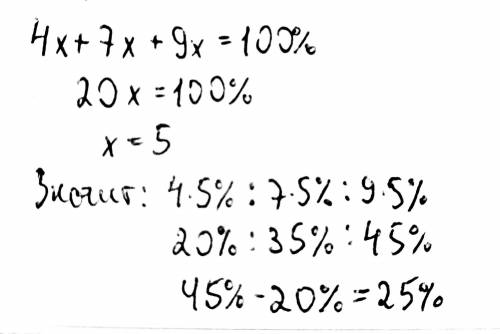 4x+7x+9x=100%
20x=100%
x=5
Значит: 4·5% : 7·5% : 9·5%
20% : 35% : 45%
45%-20%=25%